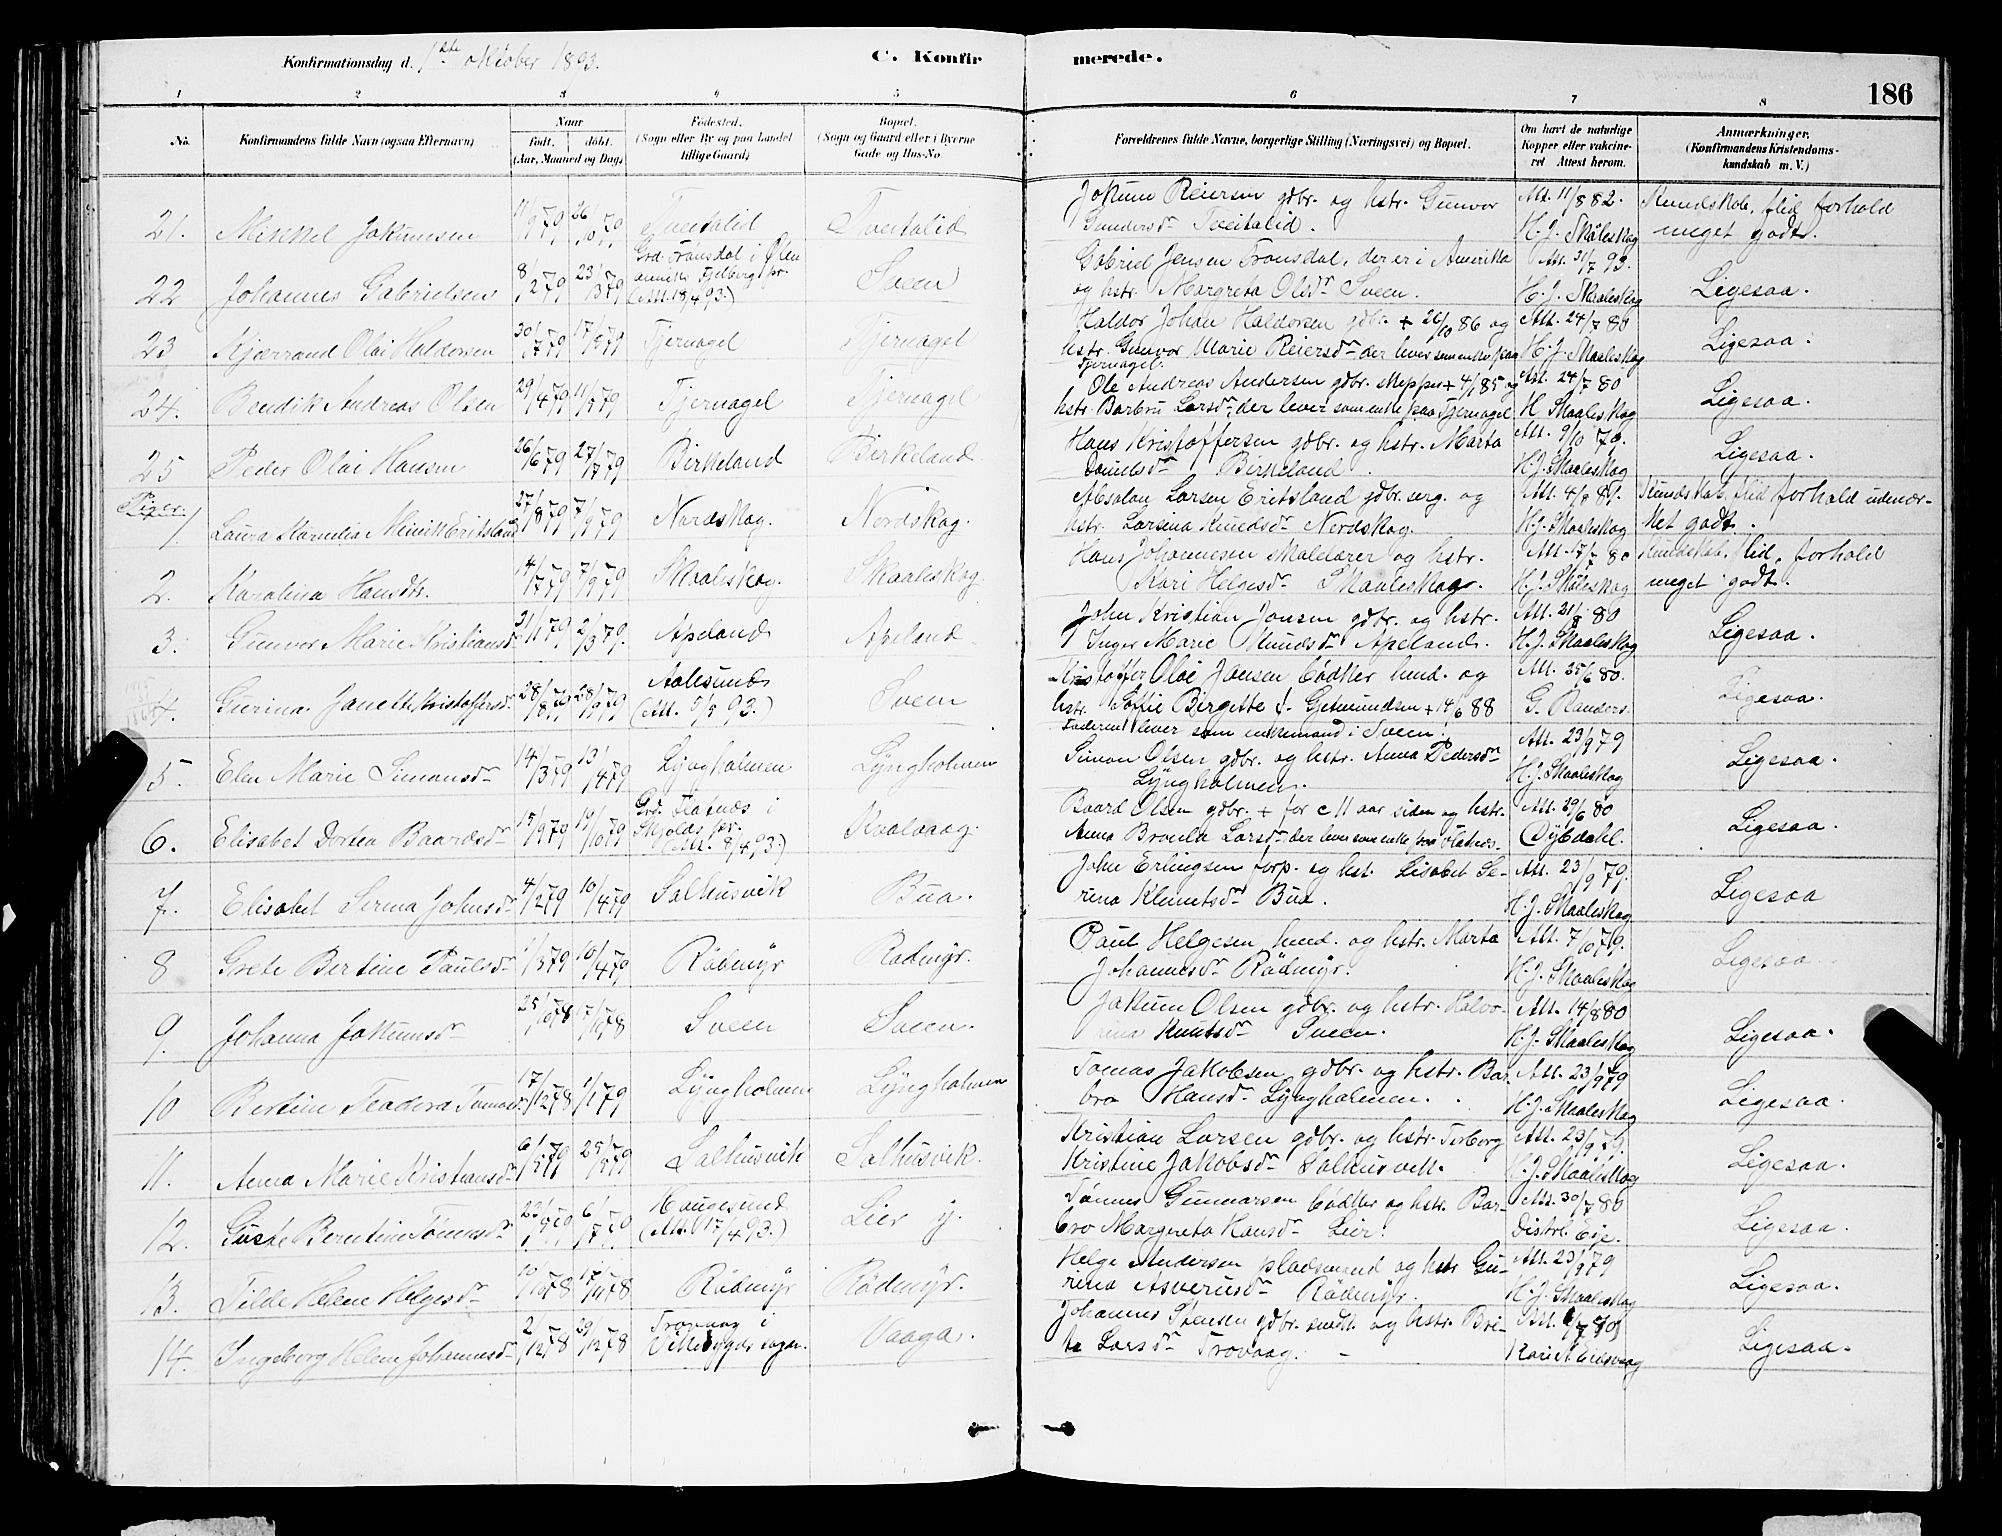 Konfirmationsdag d. 1ste oktober 1893.
C. Konfirmerede.
186
1 2 3 4 5 6 7 8
No.
Konfirmandens fulde Navn (ogsaa Efternavn)
Naar
født. døbt.
(Aar, Maaned og Dag)
Födested.
(Sogn eller By og paa Landet tillige Gaard)
Bopæl.
(Sogn og Gaard eller i Byerne Gade og Hus-No
Forældrenes fulde Navne, borgerlige Stilling (Næringsvei) og Bopæl.
Om havt de naturlige Kopper eller vakcineret Attest herom.
Anmærkninger.
(Konfirmandens Kristendomskundskab m. V.)
21. Mikkel Jakumsen 11/9 79 26/10 79 Tveitalid Tveitalid Jokum Reiersen gdbr. og hstr. Gunvor Att. 11/8 82. Kundskab, flid forhold
Gundersdr Tveitalid. H. J. Skåleskog meget godt.
22 Johannes Gabrielsen 8/2 79 23/3 79 Grd. Tronsdal i Ølen annex Fjelberg pr. (Att. 18/4 93.) Sveen Gabriel Jensen Tronsdal, der er i Amerika Att. 31/7 93.
og hstr. Margreta Olsdr Sveen. H. J. Skaaleskog Ligesaa.
23 Kjærrand Olai Haldorsen 30/7 79 17/8 79 Tjernagel Tjernagel Haldor Johan Haldorsen gdbr. + 26/10 86 og Att. 24/7 80
hstr. Gunvor Marie Reiersdr der lever som enke paa Tjernagel. H. J. Skaaleskog Ligesaa.
24. Bendik Andreas Olsen 29/4 79 11/5 79 Tjernagel Tjernagel Ole Andreas Andersen gdbr. skipper + 4/1 85 og Att. 24/7 80
hstr. Barbru Larsdr, der lever som enke paa Tjernagel H Skaaleskog Ligesaa.
25 Peder Olai Hansen 26/6 79 27/7 79 Birkeland Birkeland Hans Kristoffersen gdbr. og hstr. Marta Att. 9/10 79.
Birkeland. H. J. Skaaleskog Ligesaa.
Piger.
1 Laura Kornelia Eritsland 27/8 79 7/9 79 Nordskog. Nordskog. Absalon Larsen Eritsland gdbr. serg. og Att. 4/8 81. Kundskab, flid forhold udmær-
hstr. Larsina Knudsdr Nordskog. H. J. Skaaleskog ket godt.
2. Karolina Hansdtr. 14/7 79 7/9 79 Skaaleskog. Skaaleskog. Hans Johannesen skolelærer og hstr. Att. 17/7 80 Kundskab, flid, forhold
Kari Helgesdr Skaaleskog. H. J. Skåleskog meget godt.
3. Gunvor Marie Kristiansdr 21/1 79 2/3 79. Apeland Apeland John Kristian Jonsen gdbr. og hstr. Att. 21/8 80
Inger Marie Apeland. H. J. Skaaleskog Ligesaa.
4. Gurina Janette Kristoffersdr. 28/8 79 28/9 79 Aalesund (Att. 5/5 93.) Sveen Kristoffer Olai Jonsen bødker hmd. og Att. 25/6 80.
hstr. Soffie Birgitte f. Gjetmundsen + 14/6 88 G. Randers. Ligesaa.
Faderen lever som enkemand i Sveen.
5. Elen Marie Simonsdr 14/3 79 13/4 79 Lyngholmen Lyngholmen Simon Olsen gdbr. og hstr. Anna Pedersdr Att. 23/9 79
Lyngholmen. H. J. Skaaleskog Ligesaa.
6. Elisabet Dortea Baardsdr 15/9 79 19/10 79 Grd. Flatnæs i Skjolds pr. (Att. 8/4 93.) Kvalvaag. Baard Olsen gdbr. + for c 11 aar siden og hstr. Att. 29/6 80
Anna Larsdr der lever som enke paa Flatnæs. Dybdahl. Ligesaa.
7. Elisabet Serina Johnsdr 4/2 79 10/4 79 Salhusvik Bua. John Erlingsen forp. og hst. Lisabet Se- Att. 23/9 79.
rina Klemetsdr Bua. H. J. Skaaleskog Ligesaa
8 Grete Bertine Paulsdr 1/3 79 10/4 79 Rödmyr Rødmyr. Paul Helgesen hmd. og hstr. Marta Att. 7/10 79.
Johannesdr Rödmyr. H. J. Skaaleskog Ligesaa
9. Johanna Jakumsdr 25/10 78 17/11 78 Sveen Sveen. Jakum Olsen gdbr. og hstr. Halvo- Att. 14/8 80
rina Knutsdr Sveen. H. J. Skaaleskog Ligesaa.
10 Bertine Teadora Tomasdr. 17/12 78 1/1 79 Lyngholmen Lyngholmen Tomas Jakobsen gdbr. og hstr. Bar- Att. 23/9 79
bro Hansdr Lyngholmen. H. J. Skaaleskog Ligesaa.
11. Anna Marie Kristiansdr 6/5 79 25/5 79 Salhusvik Salhusvik. Kristian Larsen gdbr. og hstr. Torborg Att. 23/9 79.
Kristine Jakobsdr Salhusvik. H. J. Skaaleskog Ligesaa.
12. Guste Berntine Tönnesdr 23/5 79 6/7 79 Haugesund (Att. 17/4 93.) Lier y. Tønnes Gunnarsen bødker og hstr. Bar- Att. 30/7 80
bro Margreta Hansdr Lier. Distrl. Eie. Ligesaa.
13. Tilde Helene Helgesdr 10/10 78 17/11 78 Rödmyr Rødmyr. Helge Andersen pladsmand og hstr Gu- Att. 23/9 79
rina Asverusdr Rødmyr. H. J. Skaaleskog Ligesaa.
14. Ingeborg Helene Johannesdr 2/12 78 29/12 78 Trovaag i Vikebygds sogn. Vaaga. Johannes Stensen gdbr. smdt. og hstr. Bri- Att.
ta Larsdr Trovaag. Ligesaa.